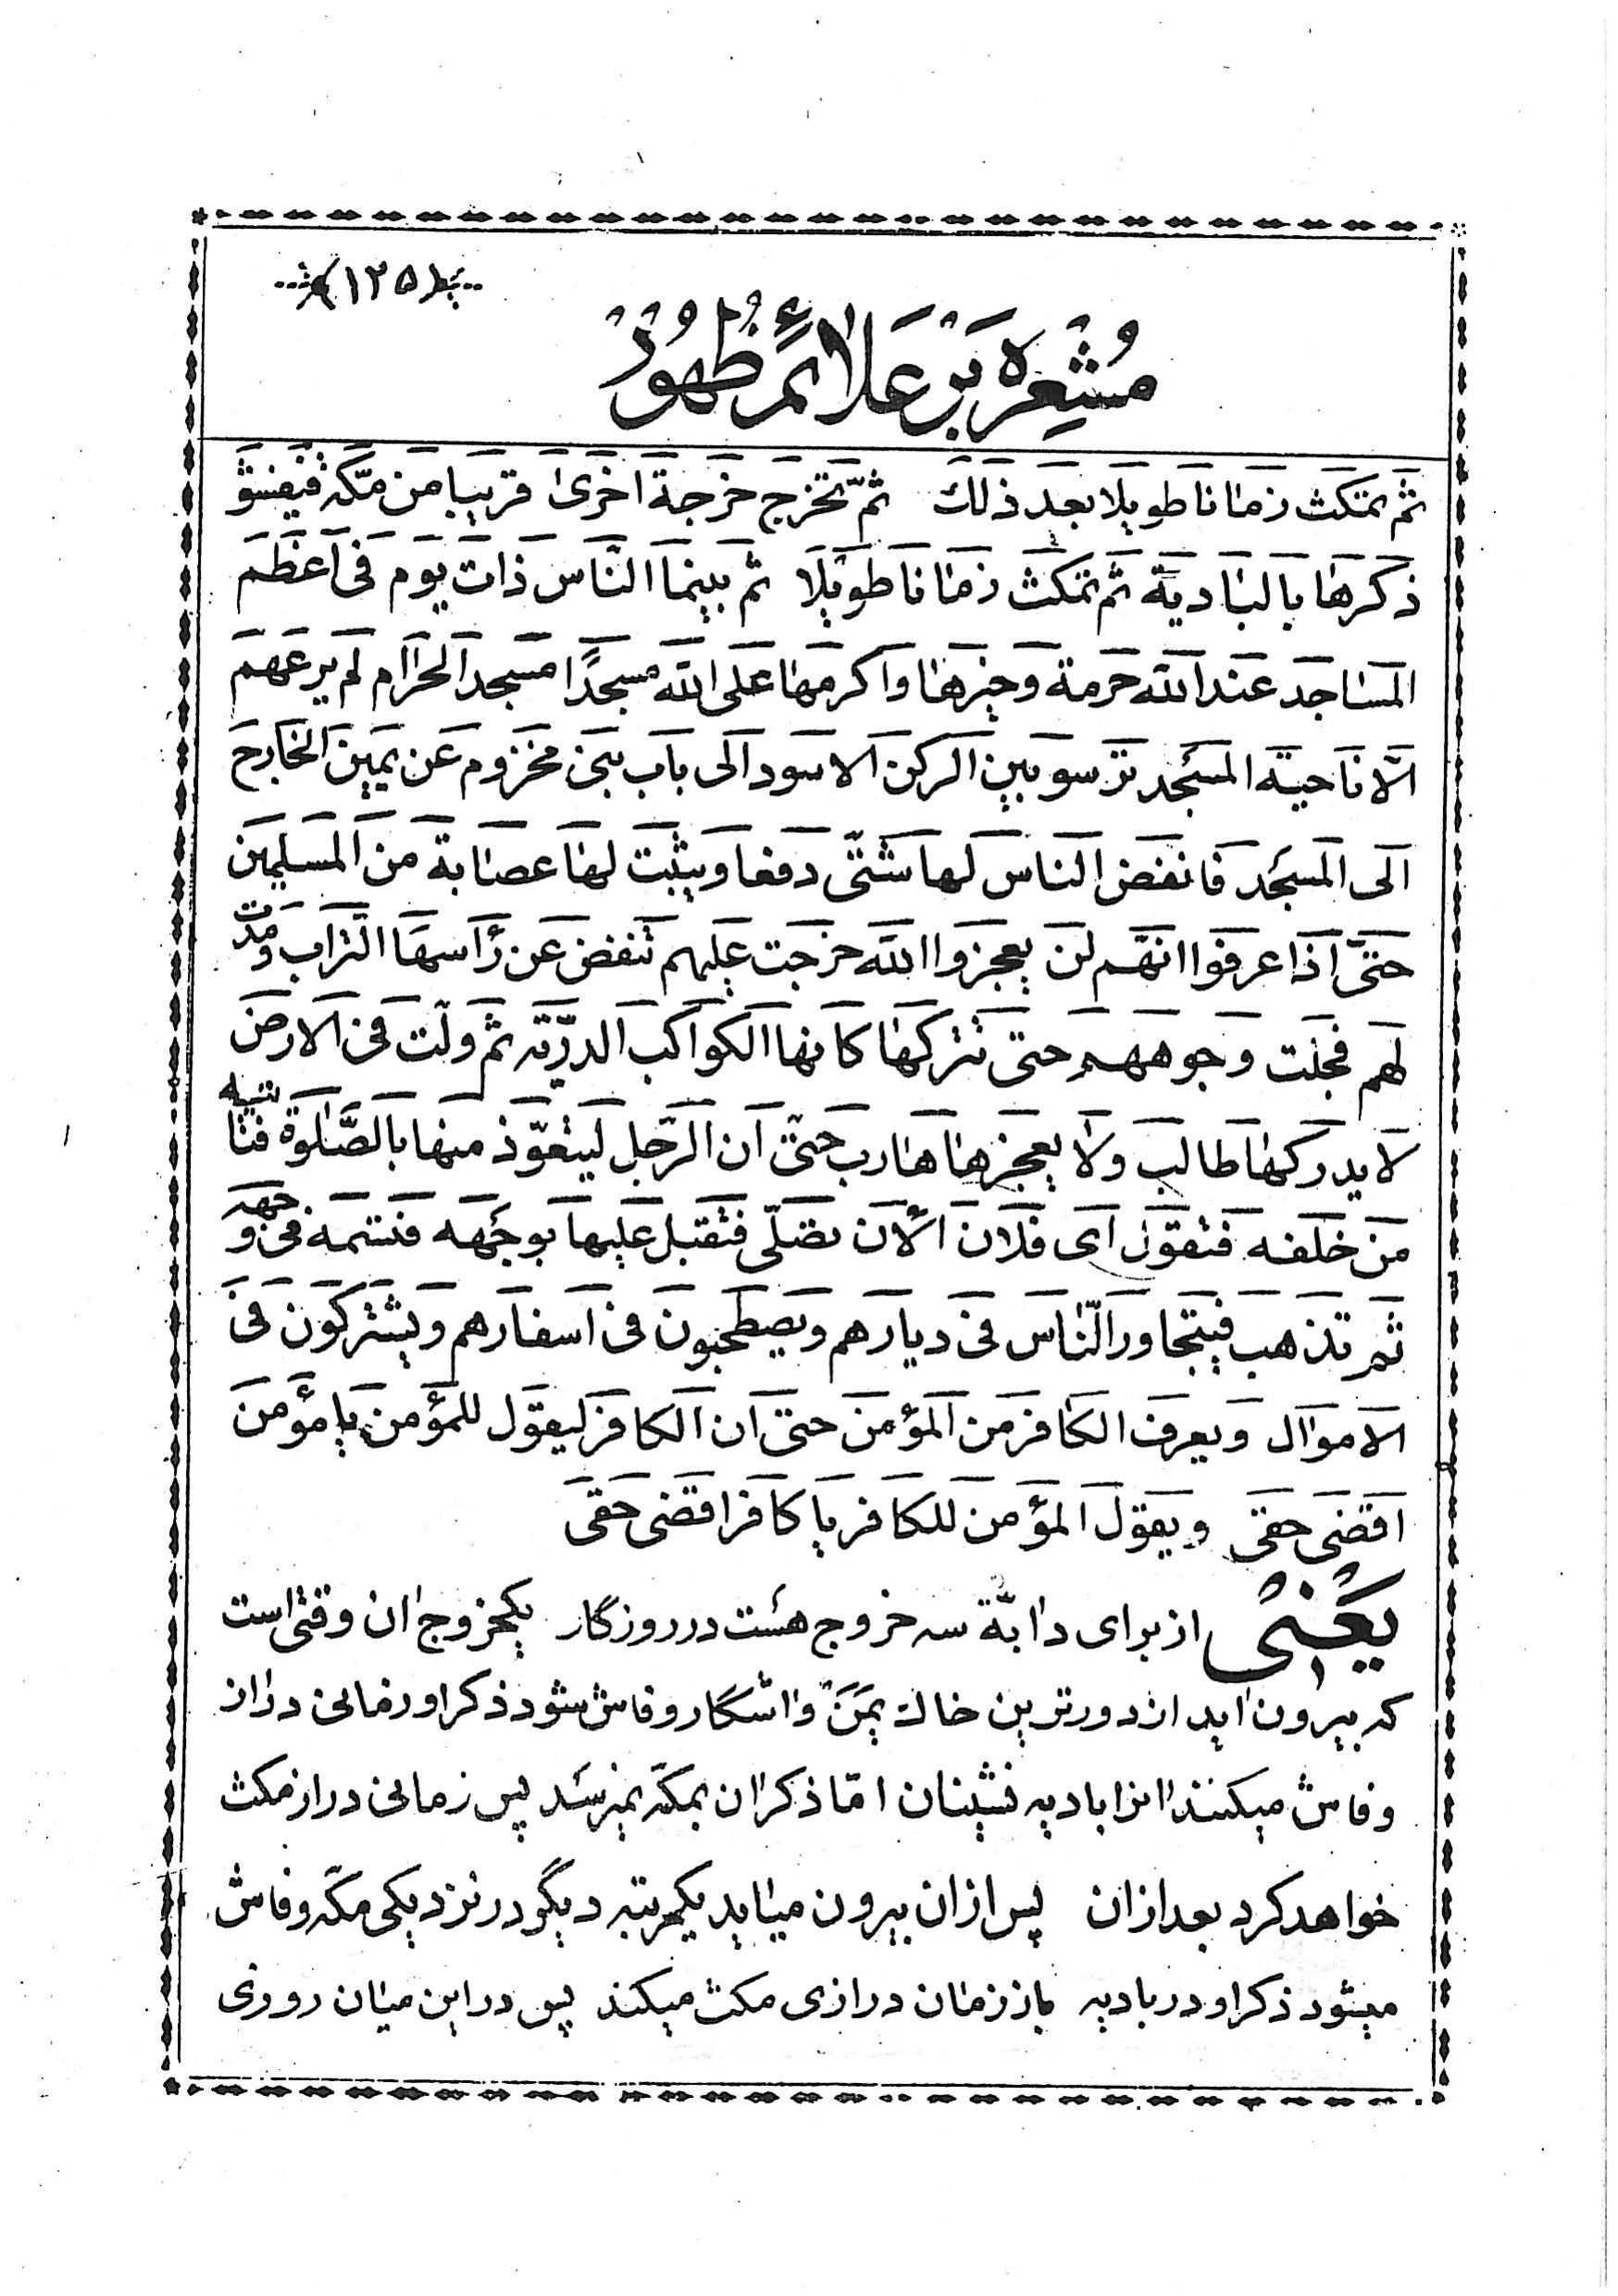 ﴿۱۲۵﴾
مُشْعِرِه بَرْ عَلائِمِ ظُهُورْ
ثم تمکث زمانا طویلا بعد ذلک ثمّ تخرج خرجة اخری قریبا من مکّه فیفشو
ذکرها بالبادیة ثم تمکث زمانا طویلا ثم بینما النّاس ذات یوم فی اعظم
المساجد عند الله حرمة و خیرها و اکرمها علی الله مسجدًا مسجد الحرام لم یرعهم
الّا ناحیة المسجد تر سو بین الرکن الاسود الی باب بنی مخزوم عن یمین الخارج
الی المسجد فانفض الناس لها شتّی دفعا و یثبت لها عصابة من المسلمین
حتّی اذا عرفوا انهم لن یعجزوا الله خرجت علیهم تنفض عن رأسها التراب و مرّت
لهم فجلت وجوههم حتی تترکها کانها الکواکب الدرّیّه ثم ولّت فی الارض
لا یدرکها طالب ولا یعجزها هارب حتّی ان الرّجل لیتعوّذ منها بالصّلوة فتاتیه
من خلفه فتقول ای فلان الأن تصلّی فتقبل علیها بوجهه فتسمه فی وجهه
ثم تذهب فیتجاور النّاس فی دیارهم و یصطحبون فی اسفارهم و یشترکون فی
الاموال و یعرف الکافر من المؤمن حتی ان الکافر لیقول للمؤمن یا مؤمن
اقضنی حقی و یقول المؤمن للکافر یا کافر اقضنی حقی
یَعْنی از برای دابّة سه خروج هست در روزگار یکخروج ان وقتی است
که بیرون اید از دورترین خاک یمن و اشکار و فاش شود ذکر او زمانی دراز
و فاش میکنند انرا بادیه نشینان امّا ذکر ان بمکّه نمیرسد پس زمانی دراز مکث
خواهد کرد بعد از ان پس از ان بیرون میاید یکمرتبه دیگر در نزدیکی مکّه و فاش
میشود ذکر او در بادیه باز زمان درازی مکث میکند پس در این میان روزی